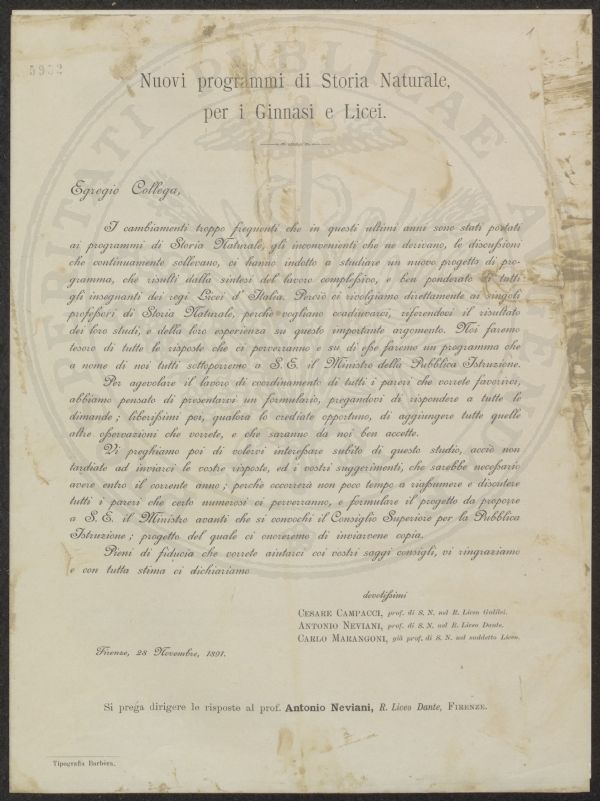 5952
1
Nuovi programmi di Storia Naturale,
per i Ginnasi e Licei.
Egregio Collega,
I cambiamenti troppo frequenti che in questi ultimi anni sono stati portati
ai programmi di Storia Naturale, gli inconvenienti che ne derivano, le discussioni
che continuamente sollevano, ci hanno indotto a studiare un nuovo progetto di pro-
gramma, che risulti dalla sintesi del lavoro complessivo, e ben ponderato di tutti
gli insegnanti dei regi Licei d'Italia. Perciò ci rivolgiamo direttamente ai singoli
professori di Storia Naturale, perchè vogliano coadiuvarci, riferendoci il risultato
dei loro studi, e della loro esperienza su questo importante argomento. Noi faremo
tesoro di tutte le risposte che ci perverranno e su di esse faremo un programma che
a nome di noi tutti sottoporremo a S. E. il Ministro della Pubblica Istruzione.
Per agevolare il lavoro di coordinamento di tutti i pareri che vorrete favorirci,
abbiamo pensato di presentarvi un formulario, pregandovi di rispondere a tutte le
dimande; liberissimi poi, qualora lo crediate opportuno, di aggiungere tutte quelle
altre osservazioni che vorrete, e che saranno da noi ben accette.
Vi preghiamo poi di volervi interessare subito di questo studio, acciò non
tardiate ad inviarci le vostre risposte, ed i vostri suggerimenti, che sarebbe necessario
avere entro il corrente anno; perchè occorrerà non poco tempo a riassumere e discutere
tutti i pareri che certo numerosi ci perverranno, e formulare il progetto da proporre
a S. E. il Ministro avanti che si convochi il Consiglio Superiore per la Pubblica
Istruzione; progetto del quale ci onoreremo di inviarvene copia.
Pieni di fiducia che vorrete aiutarci coi vostri saggi consigli, vi ringraziamo
e con tutta stima ci dichiariamo
devotissimi
CESARE CAMPACCI, prof. di S. N. nel R. Liceo Galilei.
ANTONIO NEVIANI, prof. di S. N. nel R. Liceo Dante.
CARLO MARANGONI, già prof. di S. N. nel suddetto Liceo.
Firenze, 28 Novembre, 1891.
Si prega dirigere le risposte al prof. Antonio Neviani, R. Liceo Dante, FIRENZE.
Tipografia Barbèra.